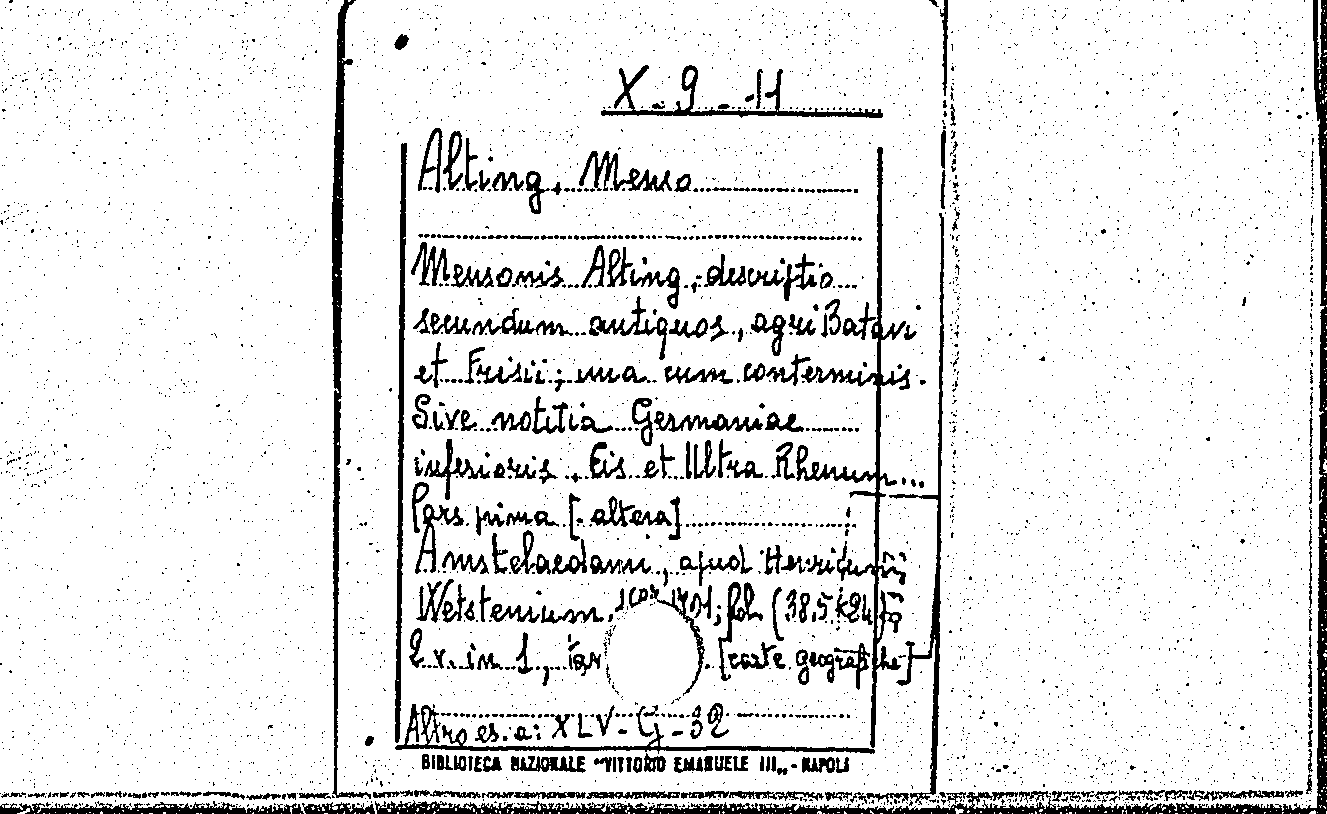 X-9-11
Alting, Menso
Mensonis Alting, descriptio
secundum antiquos, agri Batavi
et Frisii; una cum conterminis.
Sive notitia Germaniae
inferioris. Cis et Ultra Rhenum...
Pars prima [-altera]
Amstelaedami, apud Henricum
Wetstenium. 1701; fol. (38.5x24)
2 v. in 1., [carte geografiche]
Altro es. a: XLV-G-32
BIBLIOTECA NAZIONALE "VITTORIO EMANUELE III„ - NAPOLI